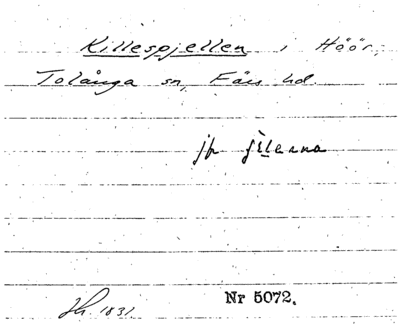 Killespjellen i Höör,
Tolånga sn, Färs hd.
jfr
Nr 5072.
1831